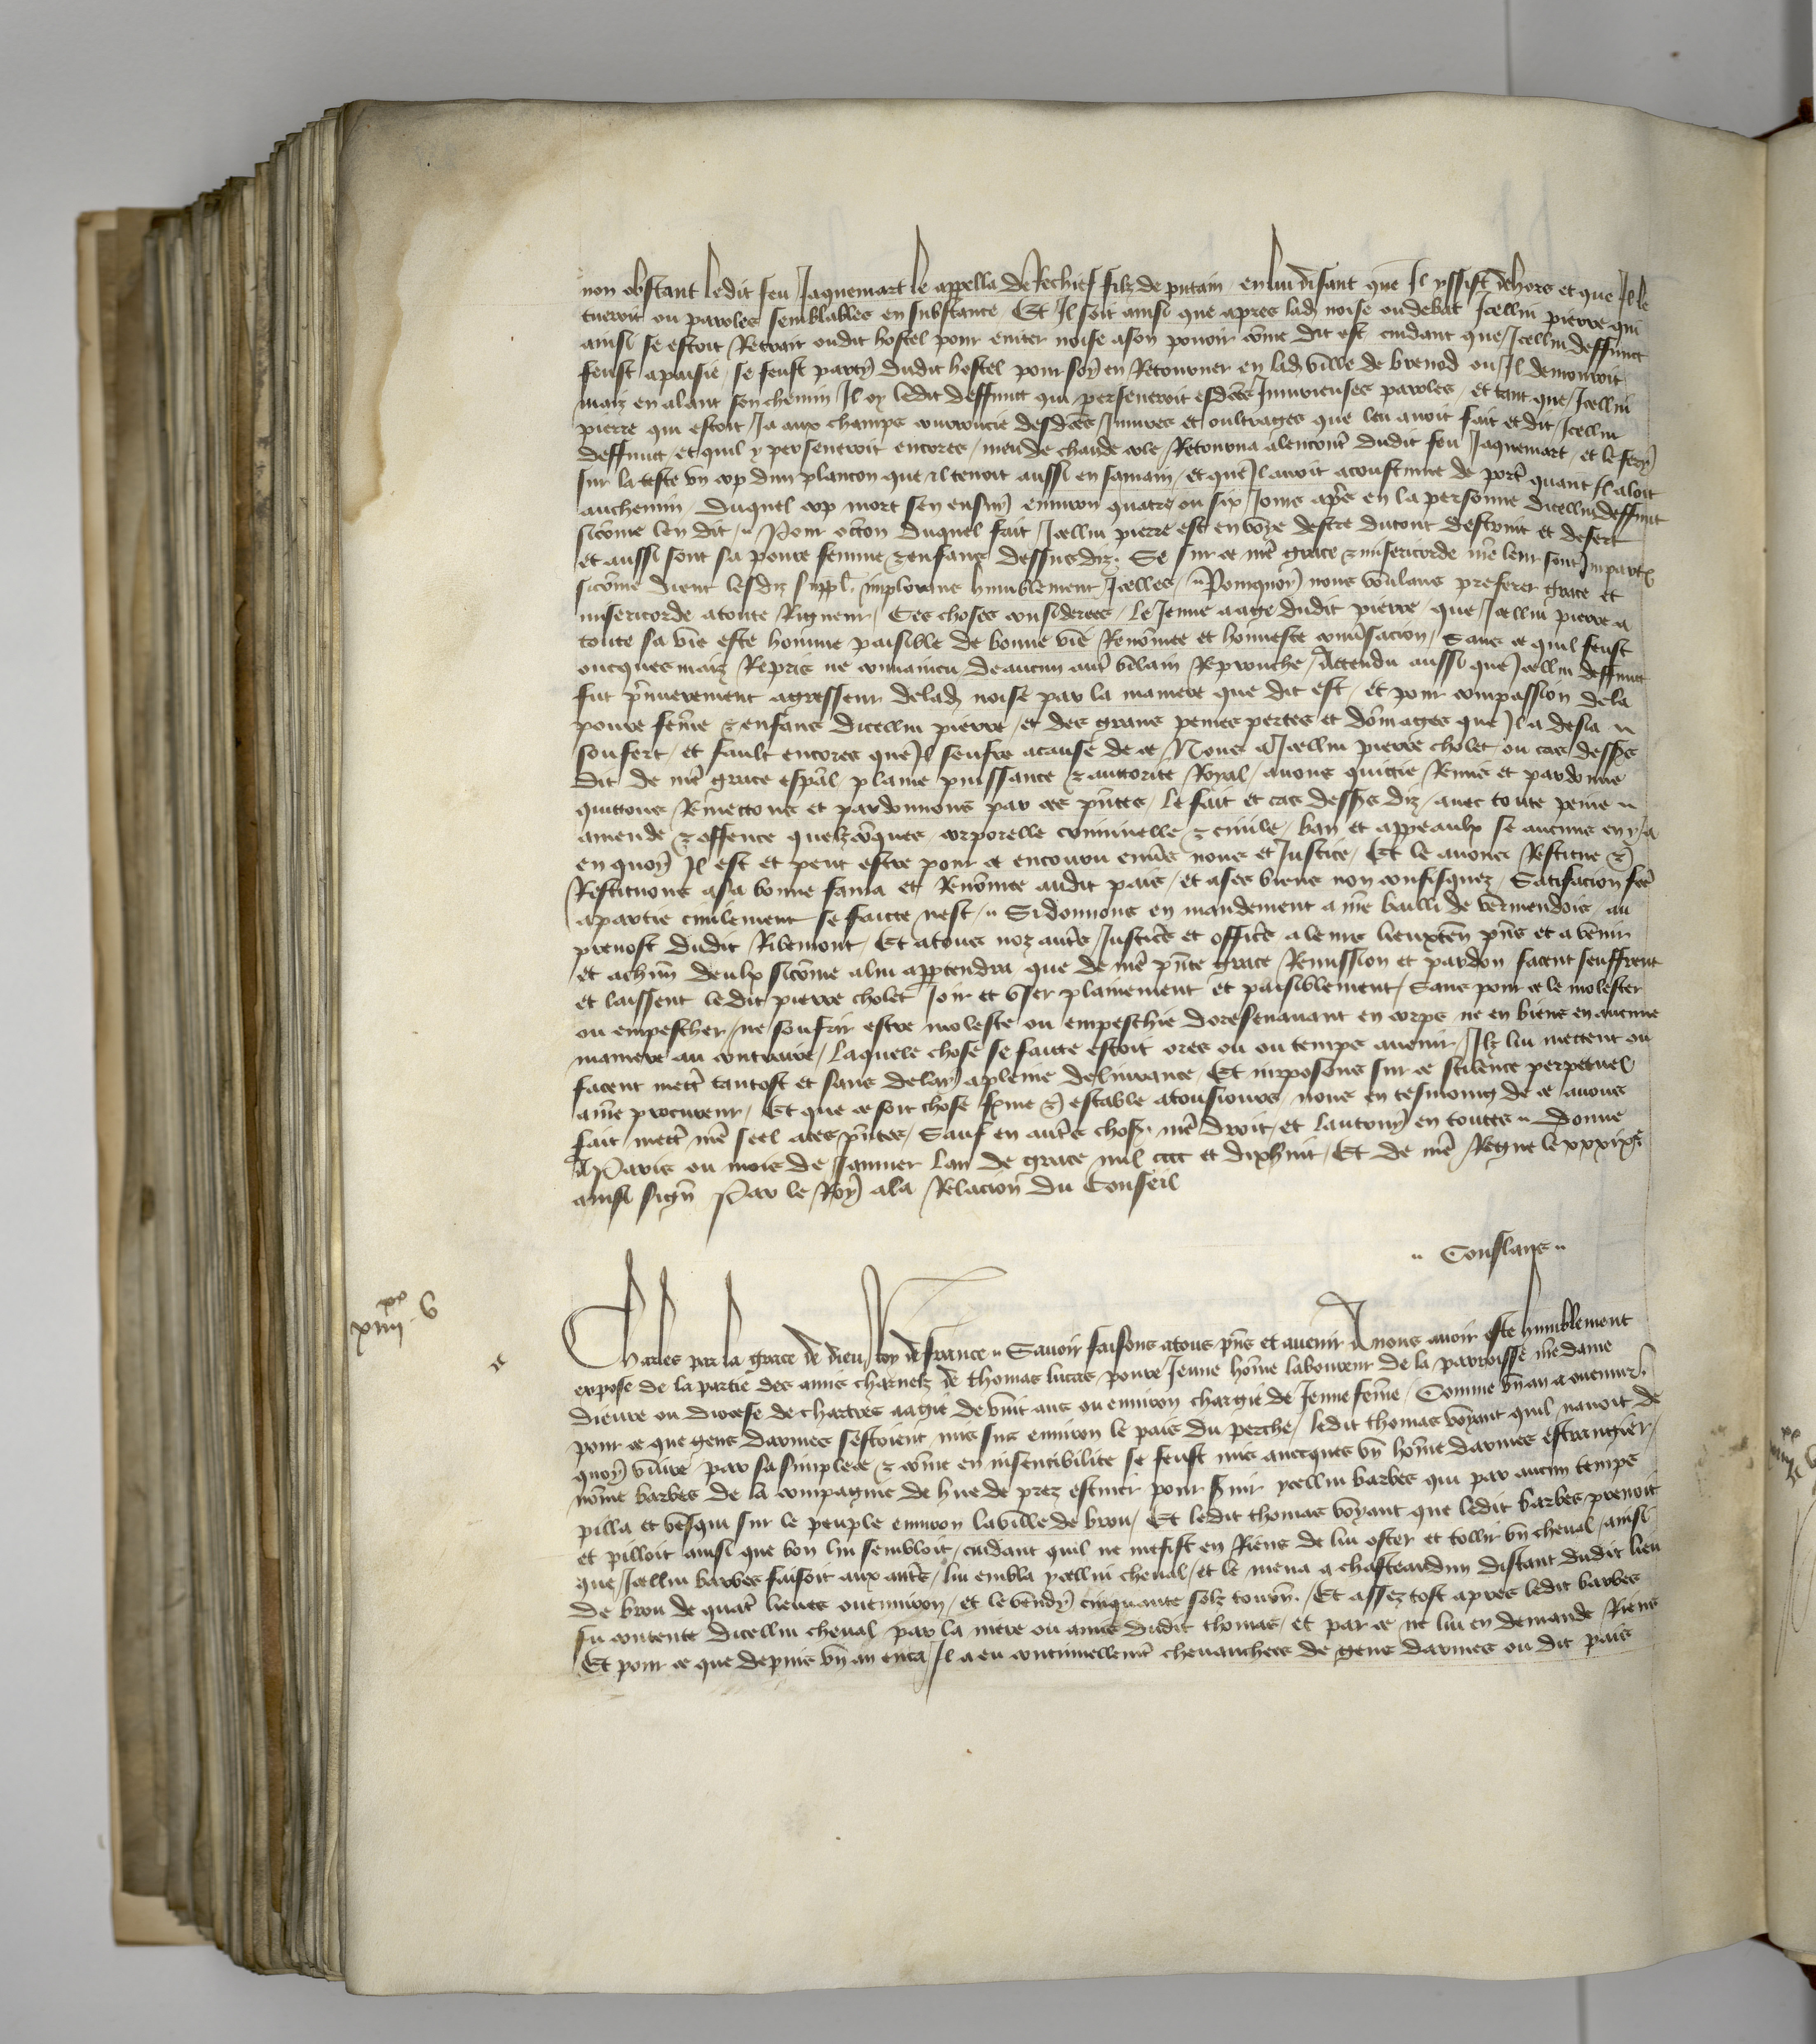 non obstant ledit feu Jaquemart le appella de Rechief filz de putain en lui disant que Il yssist dehors et que Il le
tueroit ou paroles semblables en substance Et Il soit ainsi que apres lad noise ou debat Icellui pierre qui
ainsi se estoit Retrait oudit hostel pour eviter noise a son povoir come dit est cuidant que Icellui deffunct
feust apaisie se feust party dudit hostel pour soy en Retourner en lad ville de brenod ou Il demouroit
maiz en alant son chemin Il oy ledit deffunct qui perseveroit esdces Injurieuses paroles et tant que Icellui
pierre qui estoit Ja aux champs courroucie desdces Injures et oultrages que len avoit fait et dit Icellui
deffunct et quil y perseveroit encores meu de chaude cole Retourna alencontre dudit feu Jaquemart et le fery
sur la teste un cop dun plancon que il tenoit aussi en sa main et que Il avoit acoustume de porter quant Il aloit
au chemin Duquel cop mort sen ensuy environ quatre ou six Jours apres en la personne dicellui deffunct
sicome len dit Pour occon duquel fait Icellui pierre est en voye destre du tout destruit et desert
et aussi sont sa povre femme & enfans dessusdiz Se sur ce nre grace & misericorde ne leur sont Imparty
sicome dient lesdiz suppl implorans humblement Icelles Pourquoy nous voulans preferer grace et
misericorde a toute Rigueur Ces choses considerees le Jeune aage dudit pierre que Icellui pierre a
toute sa vie este homme paisible de bonne vie Renomee et honneste conversacion Sans ce quil feust
oncques maiz Repris ne convaincu de aucun autre vilain Reprouche Attendu aussi que Icellui deffunct
fut premierement agresseur de lad noise par la maniere que dit est et pour compassion de la
povre feme & enfans dicellui pierre et des grans peines pertes et domages que Il a desia
soufert et fault encores que Il seufre a cause de ce Nous a Icellui pierre cholet ou cas dessus
dit de nre grace especial plaine puissance & auctorite Royal avons quictie Remis et pardonne
quictons Remettons et pardonnons par ces pntes le fait et cas dessus diz avec toute peine
amende & offence quelzconques corporelle criminelle & civile ban et appeaulx se aucuns en y a
en quoy Il est et peut estre pour ce encouru envers nous et Justice Et le avons Restitue &
Restituons a sa bonne fama et Renomee audit pais et a ses biens non confisquez Satifacion fce
a partie civilement se faicte nest Si donnons en mandement a nre bailli de vermendois au
prevost dudit Ribemont Et a tous noz autres Justiciers et officiers a leurs lieuxten pns et a venir
et a chun deulx sicome a lui appendra que de nre pnte grace Remission et pardon facent seuffrent
et laissent ledit pierre cholet Joir et user plainement et paisiblement Sans pour ce le molester
ou empescher ne soufrir estre moleste ou empeschie doresenavant en corps ne en biens en aucune
maniere au contraire laquele chose se faicte estoit ores ou ou temps avenir Ilz lui mettent ou
facent mettre tantost et sans delay a pleine delivrance Et imposons sur ce scilence perpetuel
a nre procureur Et que ce soit chose ferme & estable a tousjours nous en tesmoing de ce avons
fait mettre nre seel a ces pntes Sauf en autres choses nre droit et lautruy en toutes Donne
A Paris ou mois de Janvier lan de grace mil cccc et dixhuit Et de nre Regne le xxxixe
ainsi signe Par le Roy a la Relacion du Conseil
Conflans
xx
xiiii v
Charles par la grace de dieu Roy de france Savoir faisons a tous pns et avenir A nous avoir este humblement
expose de la partie des amis charnelz de thomas lucas povre Jeune home laboureur de la parroisse nre dame
Dieure ou diocese de chartres aagie de vint ans ou environ chargie de Jeune feme Comme un an a ou environ
pour ce que gens darmes sestoient mis sus environ le pais du perche ledit thomas voyant quil navoit de
quoy vivre par sa simplece & come en insencibilite se feust mis avecques un home darmes estrangier
nome barbes de la compagnie de hue de prez escuier pour servir ycellui barbes qui par aucun temps
pilla et vesqui sur le peuple environ la ville de brou Et ledit thomas voyant que ledit barbes prenoit
et pilloit ainsi que bon lui sembloit cuidant quil ne mesfist en Riens de lui oster et tollir un cheval ainsi
que Icellui barbes faisoit aux autres lui embla ycellui cheval et le mena a chasteaudun distant dudit lieu
de brou de quatre lieues ou environ et le vendy cinquante solz tourn Et assez tost apres ledit barbes
fu contente dicellui cheval par la mere ou amis dudit thomas et par ce ne lui en demande Riens
Et pour ce que depuis un an enca Il a eu continuellement chevauchees de gens darmes ou dit pais